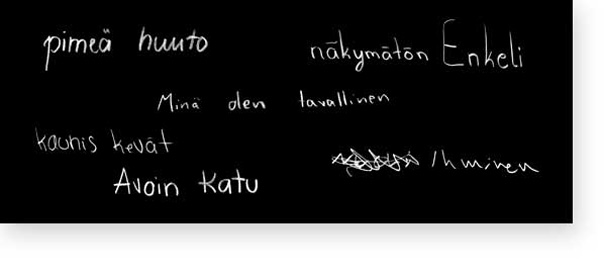 pimeä huuto
näkymätön Enkeli
Minä olen tavallinen
kaunis kevät
Ihminen
Avoin katu